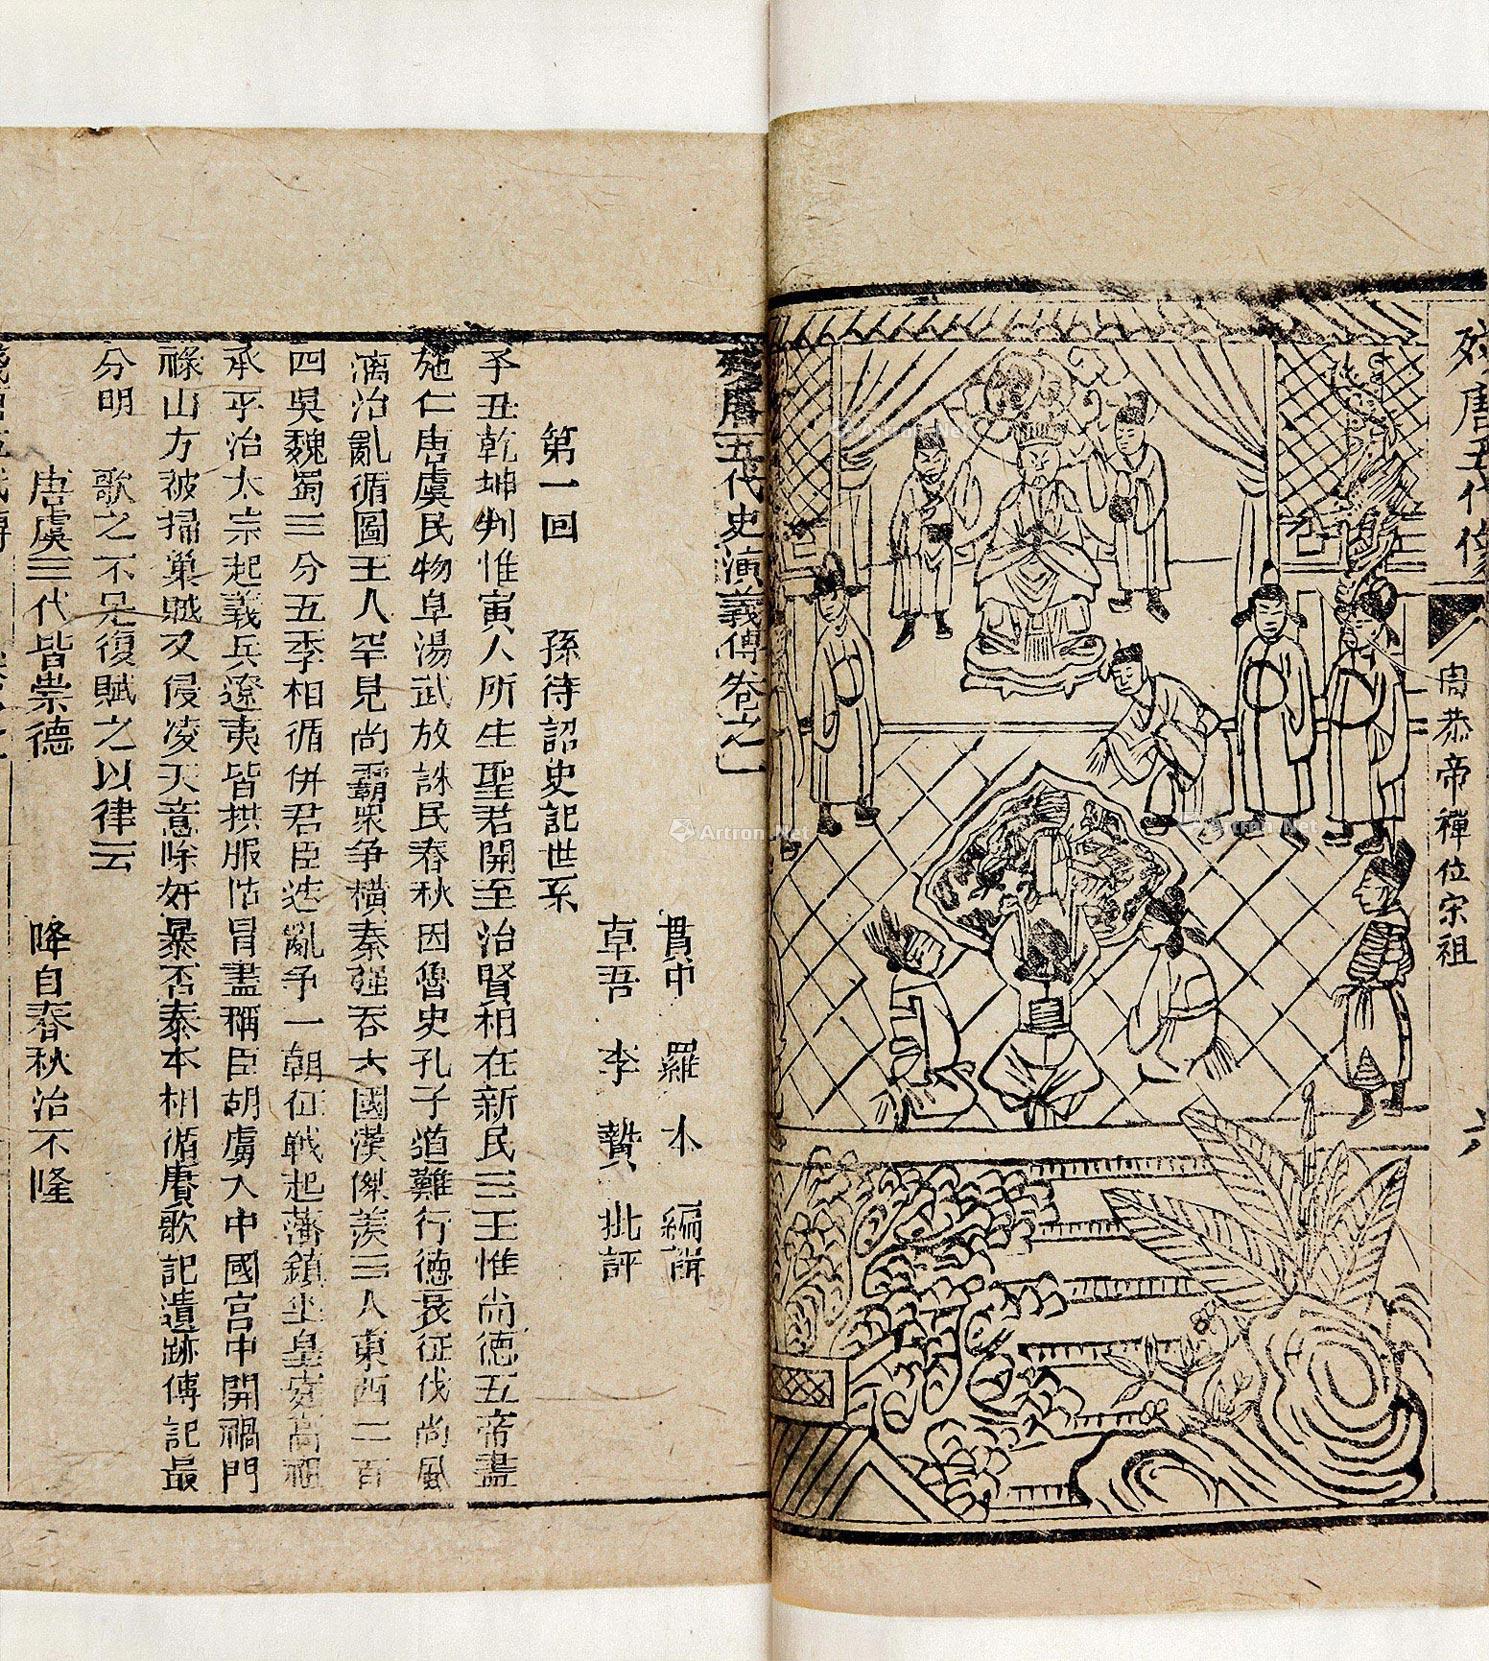 殘唐五代像
周恭帝禪位宋祖
六
殘唐五代史演義傳卷之一
貫中 羅本 編輯
卓吾 李贄 批評
第一回 孫待詔史記世系
子丑乾坤判惟寅人所生聖君開至治賢相在新民三王惟尚德五帝盡
施仁唐虞民物阜湯武放誅民春秋因魯史孔子道難行德衰征伐尚風
漓治亂循圖王人罕見尚霸衆争横秦强吞六國漢傑羨三人東西二百
四吳魏蜀三分五季相循併君臣迭亂争一朝征戰起藩鎮坐皇宮高祖
承平治太宗起義兵遼夷皆拱服怙冒盡稱臣胡虜入中國宮中開禍門
祿山方被掃巢賊又侵凌天意除奸暴否泰本相循賡歌記遺跡傳記最
分明 歌之不足復賦之以律云
唐虞三代皆崇德 降自春秋治不隆
Artron.Net
Artron.Net
Artron.Net